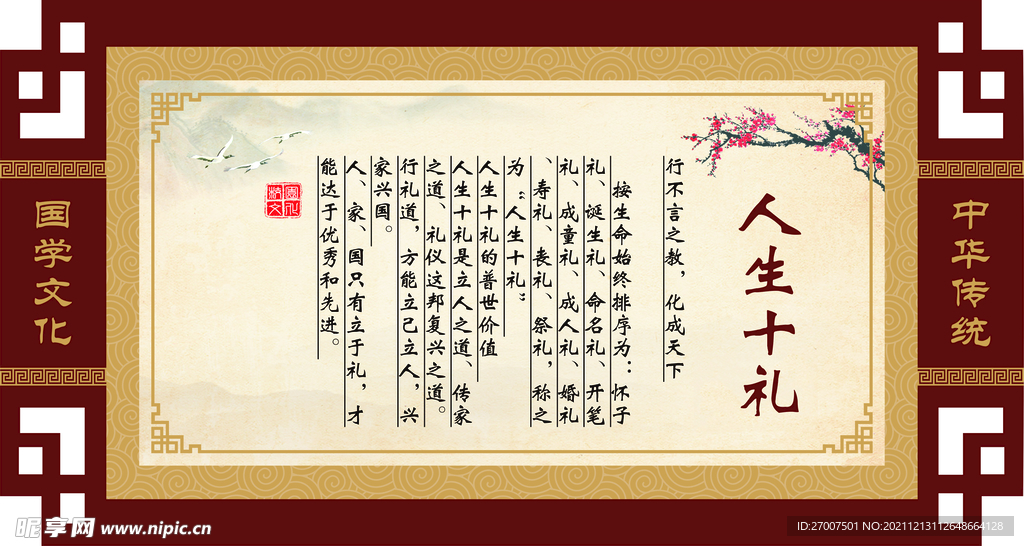 中华传统
人生十礼
行不言之教，化成天下
按生命始终排序为：怀子
礼、诞生礼、命名礼、开笔
礼、成童礼、成人礼、婚礼
、寿礼、丧礼、祭礼，称之
为“人生十礼”
人生十礼的普世价值
人生十礼是立人之道、传家
之道、礼仪这邦复兴之道。
行礼道，方能立己立人，兴
家兴国。
人、家、国只有立于礼，才
能达于优秀和先进。
国学文化
昵享网 www.nipic.cn
ID:27007501 NO:20211213112648664128